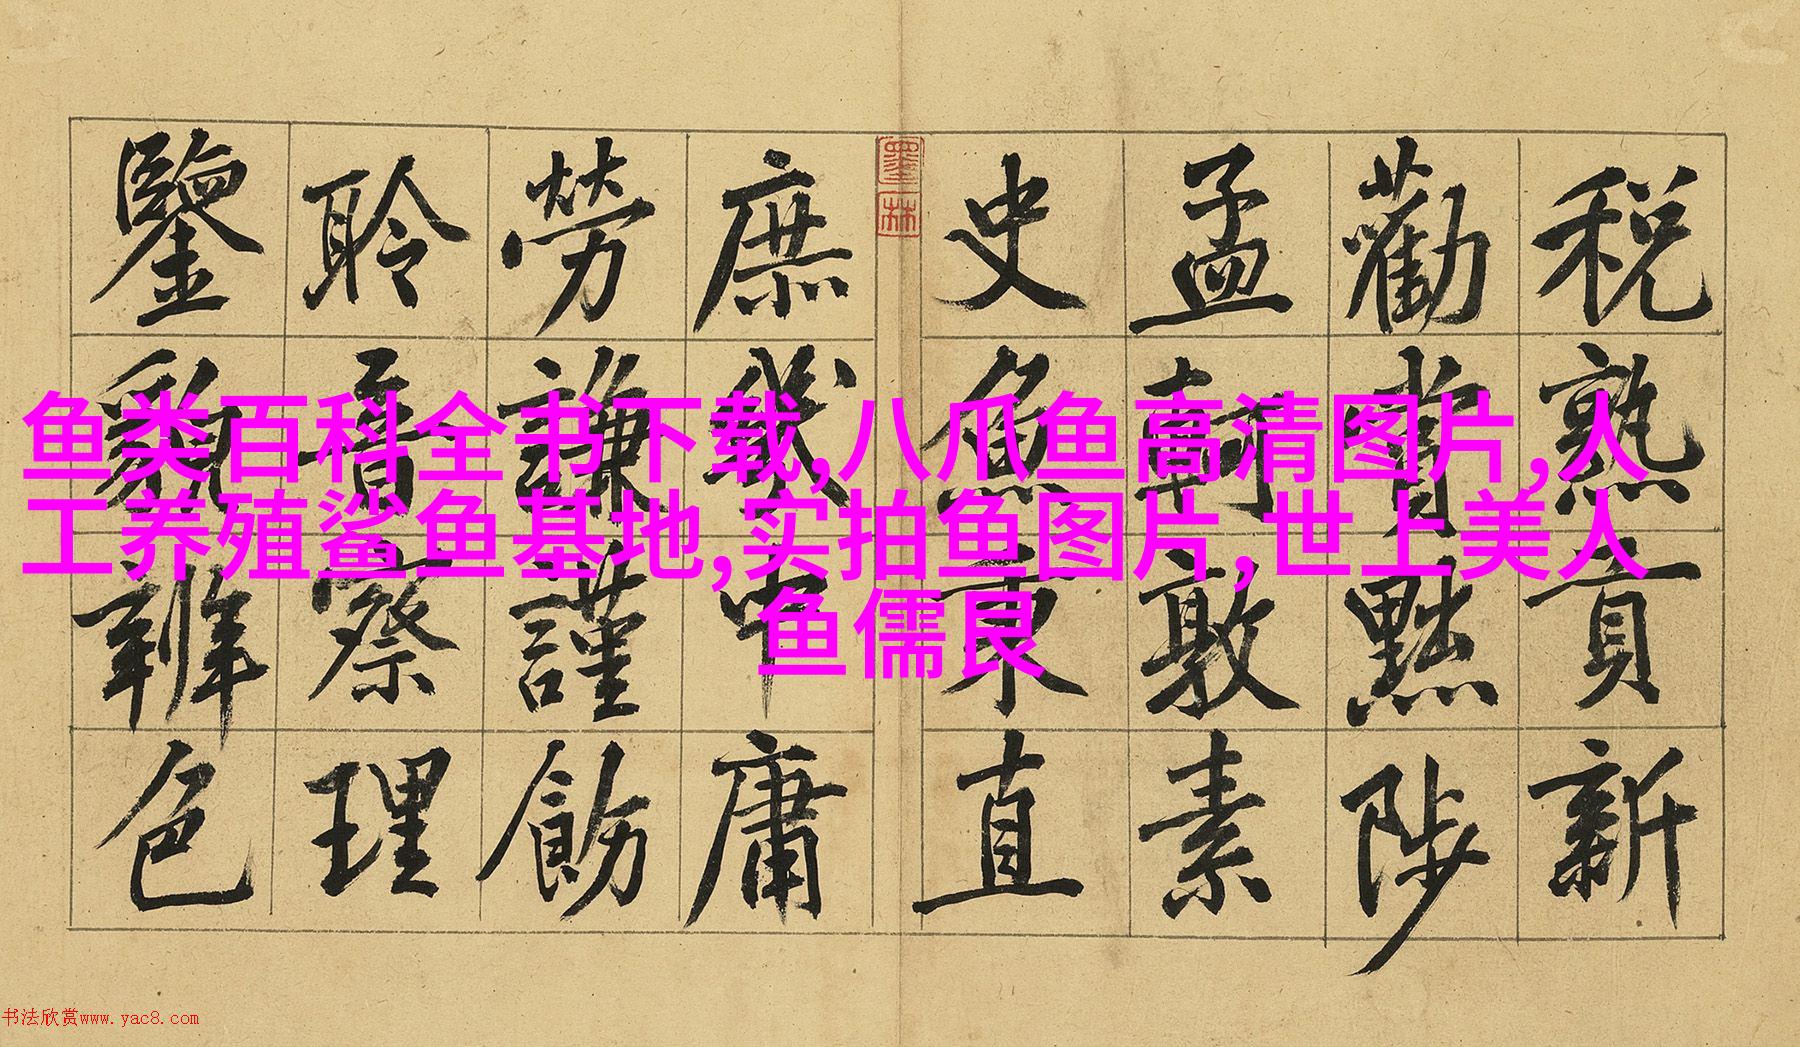 税熟貢新
勸賞黜陟
孟軻敦素
史魚秉直
墨林
庶幾中庸
勞謙謹飭
聆音察理
鑒貌辨色
鱼类百科全书下载,八爪鱼高清图片,人
工养殖鲨鱼基地,实拍鱼图片,世上美人
鱼儒艮
书法欣赏www.yac8.com